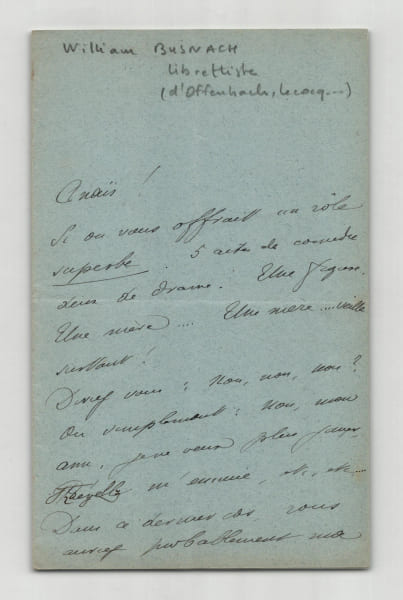 William BUSNACH
librettiste
(d'Offenbach, Lecocq...)
Anaïs !
Si on vous offrait un rôle
superbe. 5 actes de comédie
deux de drame. Une
Une mère .... Une mère .... vieille
surtout !
Diriez vous : Non, non, non ?
Ou simplement : Non, mon
ami, je ne veux plus jouer,
m'ennuie, etc, etc....
Dans ce dernier cas, vous
auriez probablement